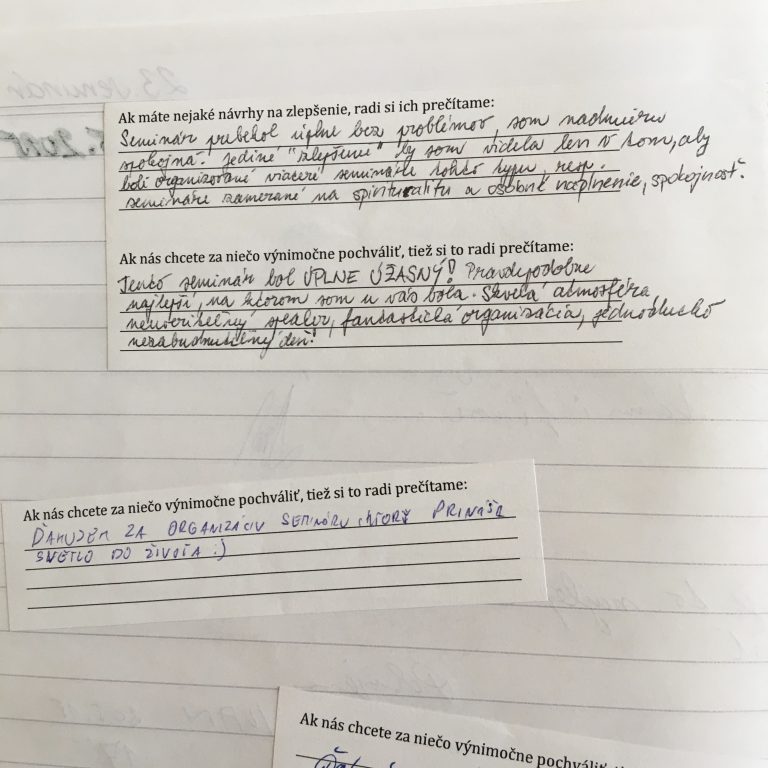 23. seminár
5. 2015
Ak máte nejaké návrhy na zlepšenie, radi si ich prečítame:
Seminár prebehol úplne bez problémov, som nadmieru
spokojná! Jediné "zlepšenie" by som videla len v tom, aby
boli organizované viaceré semináre tohto typu, resp.
semináre zamerané na spiritualitu a osobné naplnenie, spokojnosť.
Ak nás chcete za niečo výnimočne pochváliť, tiež si to radi prečítame:
Tento seminár bol ÚPLNE ÚŽASNÝ! Pravdepodobne
najlepší, na ktorom som u vás bola. Skvelá atmosféra
neuveriteľný speaker, fantastická organizácia, jednoducho
nezabudnuteľný deň!
Ak nás chcete za niečo výnimočne pochváliť, tiež si to radi prečítame:
ĎAKUJEM ZA ORGANIZÁCIU SEMINÁRU, KTORÝ PRINÁŠA
SVETLO DO ŽIVOTA :)
Ak nás chcete za niečo výnimočne pochváliť, t